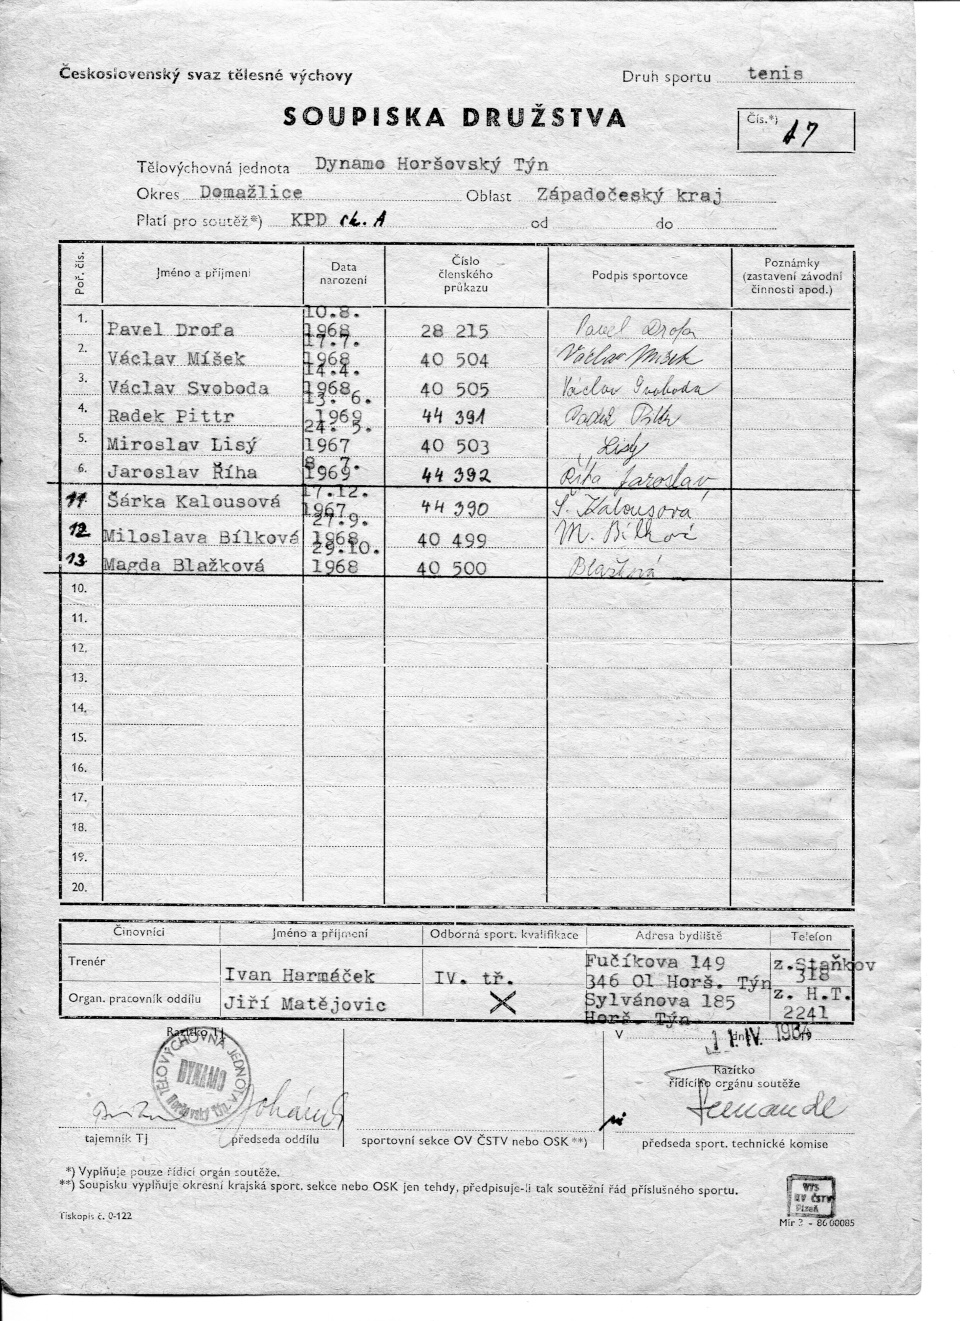 Československý svaz tělesné výchovy
Druh sportu tenis
SOUPISKA DRUŽSTVA
Čís.*) A7
Tělovýchovná jednota Dynamo Horšovský Týn
Okres Domažlice Oblast Západočeský kraj
Platí pro soutěž*) KPD sk. A od do
Poř. čís. Jméno a příjmení Data narození Číslo členského průkazu Podpis sportovce Poznámky (zastavení závodní činnosti apod.)
1. Pavel Drofa 10.8. 1968 28 215 Pavel Drofa
2. Václav Míšek 17.7. 1968 40 504 Václav Míšek
3. Václav Svoboda 14.4. 1968 40 505 Václav Svoboda
4. Radek Pittr 13. 6. 1969 44 391 Radek Pittr
5. Miroslav Lisý 24. 5. 1967 40 503 Lisý
6. Jaroslav Říha 8. 7. 1969 44 392 Říha Jaroslav
11 Šárka Kalousová 17.12. 1967 44 390 Š. Kalousová
12 Miloslava Bílková 27.9. 1968 40 499 M. Bílková
13 Magda Blažková 29.10. 1968 40 500 Blažková
10.
11.
12.
13.
14.
15.
16.
17.
18.
19.
20.
Činovníci Jméno a příjmení Odborná sport. kvalifikace Adresa bydliště Telefon
Trenér Ivan Harmáček IV. tř. Fučíkova 149 346 01 Horš. Týn z.Staňkov 318
Organ. pracovník oddílu Jiří Matějovic Sylvánova 185 Horš. Týn z. H.T. 2241
Razítko TJ
TĚLOVÝCHOVNÁ JEDNOTA
DYNAMO
Horšovský Týn
V dne 11. IV. 1984
Razítko
řídícího orgánu soutěže
tajemník TJ předseda oddílu sportovní sekce OV ČSTV nebo OSK **) předseda sport. technické komise
*) Vyplňuje pouze řídící orgán soutěže.
**) Soupisku vyplňuje okresní krajská sport. sekce nebo OSK jen tehdy, předpisuje-li tak soutěžní řád příslušného sportu.
VTS
KV ČSTV
Plzeň
Tiskopis č. 0-122
Mír 2 - 8600085